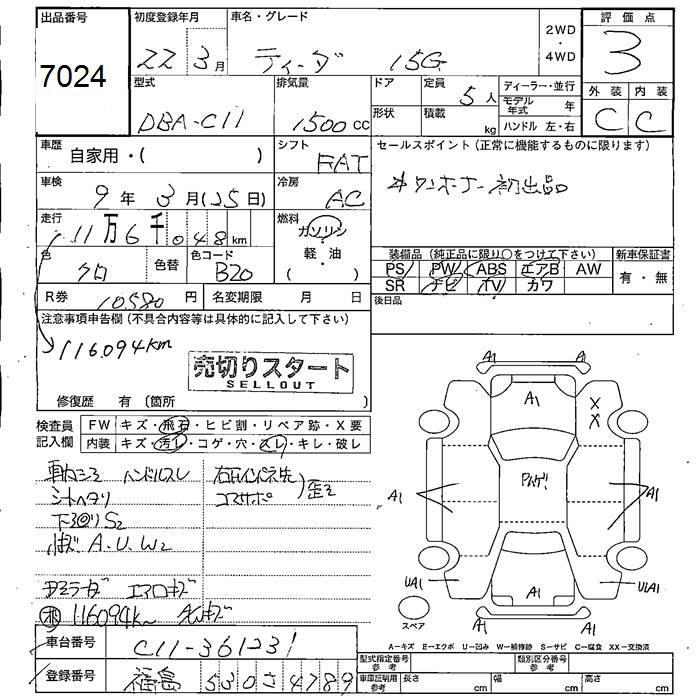 出品番号 初度登録年月 車名・グレード 2WD ・ 4WD 評価点
7024 22年 3月 ティーダ 15G 3
型式 排気量 ドア 定員 ディーラー・並行 外装 内装
DBA-C11 1500cc 5人 モデル年式 年 C C
形状 積載 kg ハンドル 左・右
車歴 自家用・( ) シフト FAT セールスポイント (正常に機能するものに限ります)
車検 9年 3月(25日) 冷房 AC ワンオーナー 初出品
走行 11万6千048km 燃料 ガソリン
軽・油
( )
色 クロ 色替 色コード B20 装備品 (純正品に限り○をつけて下さい) 新車保証書
PS PW ABS エアB AW 有・無
SR ナビ TV カワ
R券 10580円 名変期限 月 日 後日品
注意事項申告欄 (不具合内容等は具体的に記入して下さい)
116.094km
売切りスタート
SELLOUT
修復歴 有 (箇所 )
検査員記入欄 FW キズ・飛石・ヒビ割・リペア跡・X要
内装 キズ・汚レ・コゲ・穴・スレ・キレ・破レ
ハンドルスレ
シートヘタリ コアサポ 歪ミ
下 S2
A.U.W2
エアロキズ
116094km
A1 A1
A1 X X
A1 A1
UA1 A1 U1A1
スペア
A1
A-キズ E-エクボ U-凹み W-補修跡 S-サビ C-腐食 XX-交換済
車台番号 C11-361231
型式指定番号 参考 類別区分番号 参考
登録番号 福島 530 さ 4789
車庫証明用 参考 長さ cm 幅 cm 高さ cm